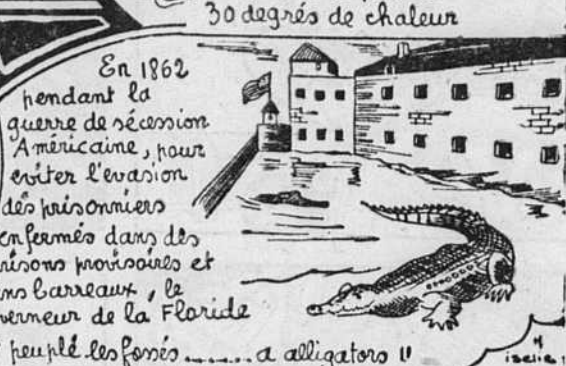 30 degrés de chaleur
En 1862
pendant la
guerre de sécession
Américaine, pour
eviter l'evasion
des prisonniers
enfermés dans des
risons provisoires et
ns barreaux, le
verneur de la Floride
peuplé les fossés....... a alligators !!
iselin